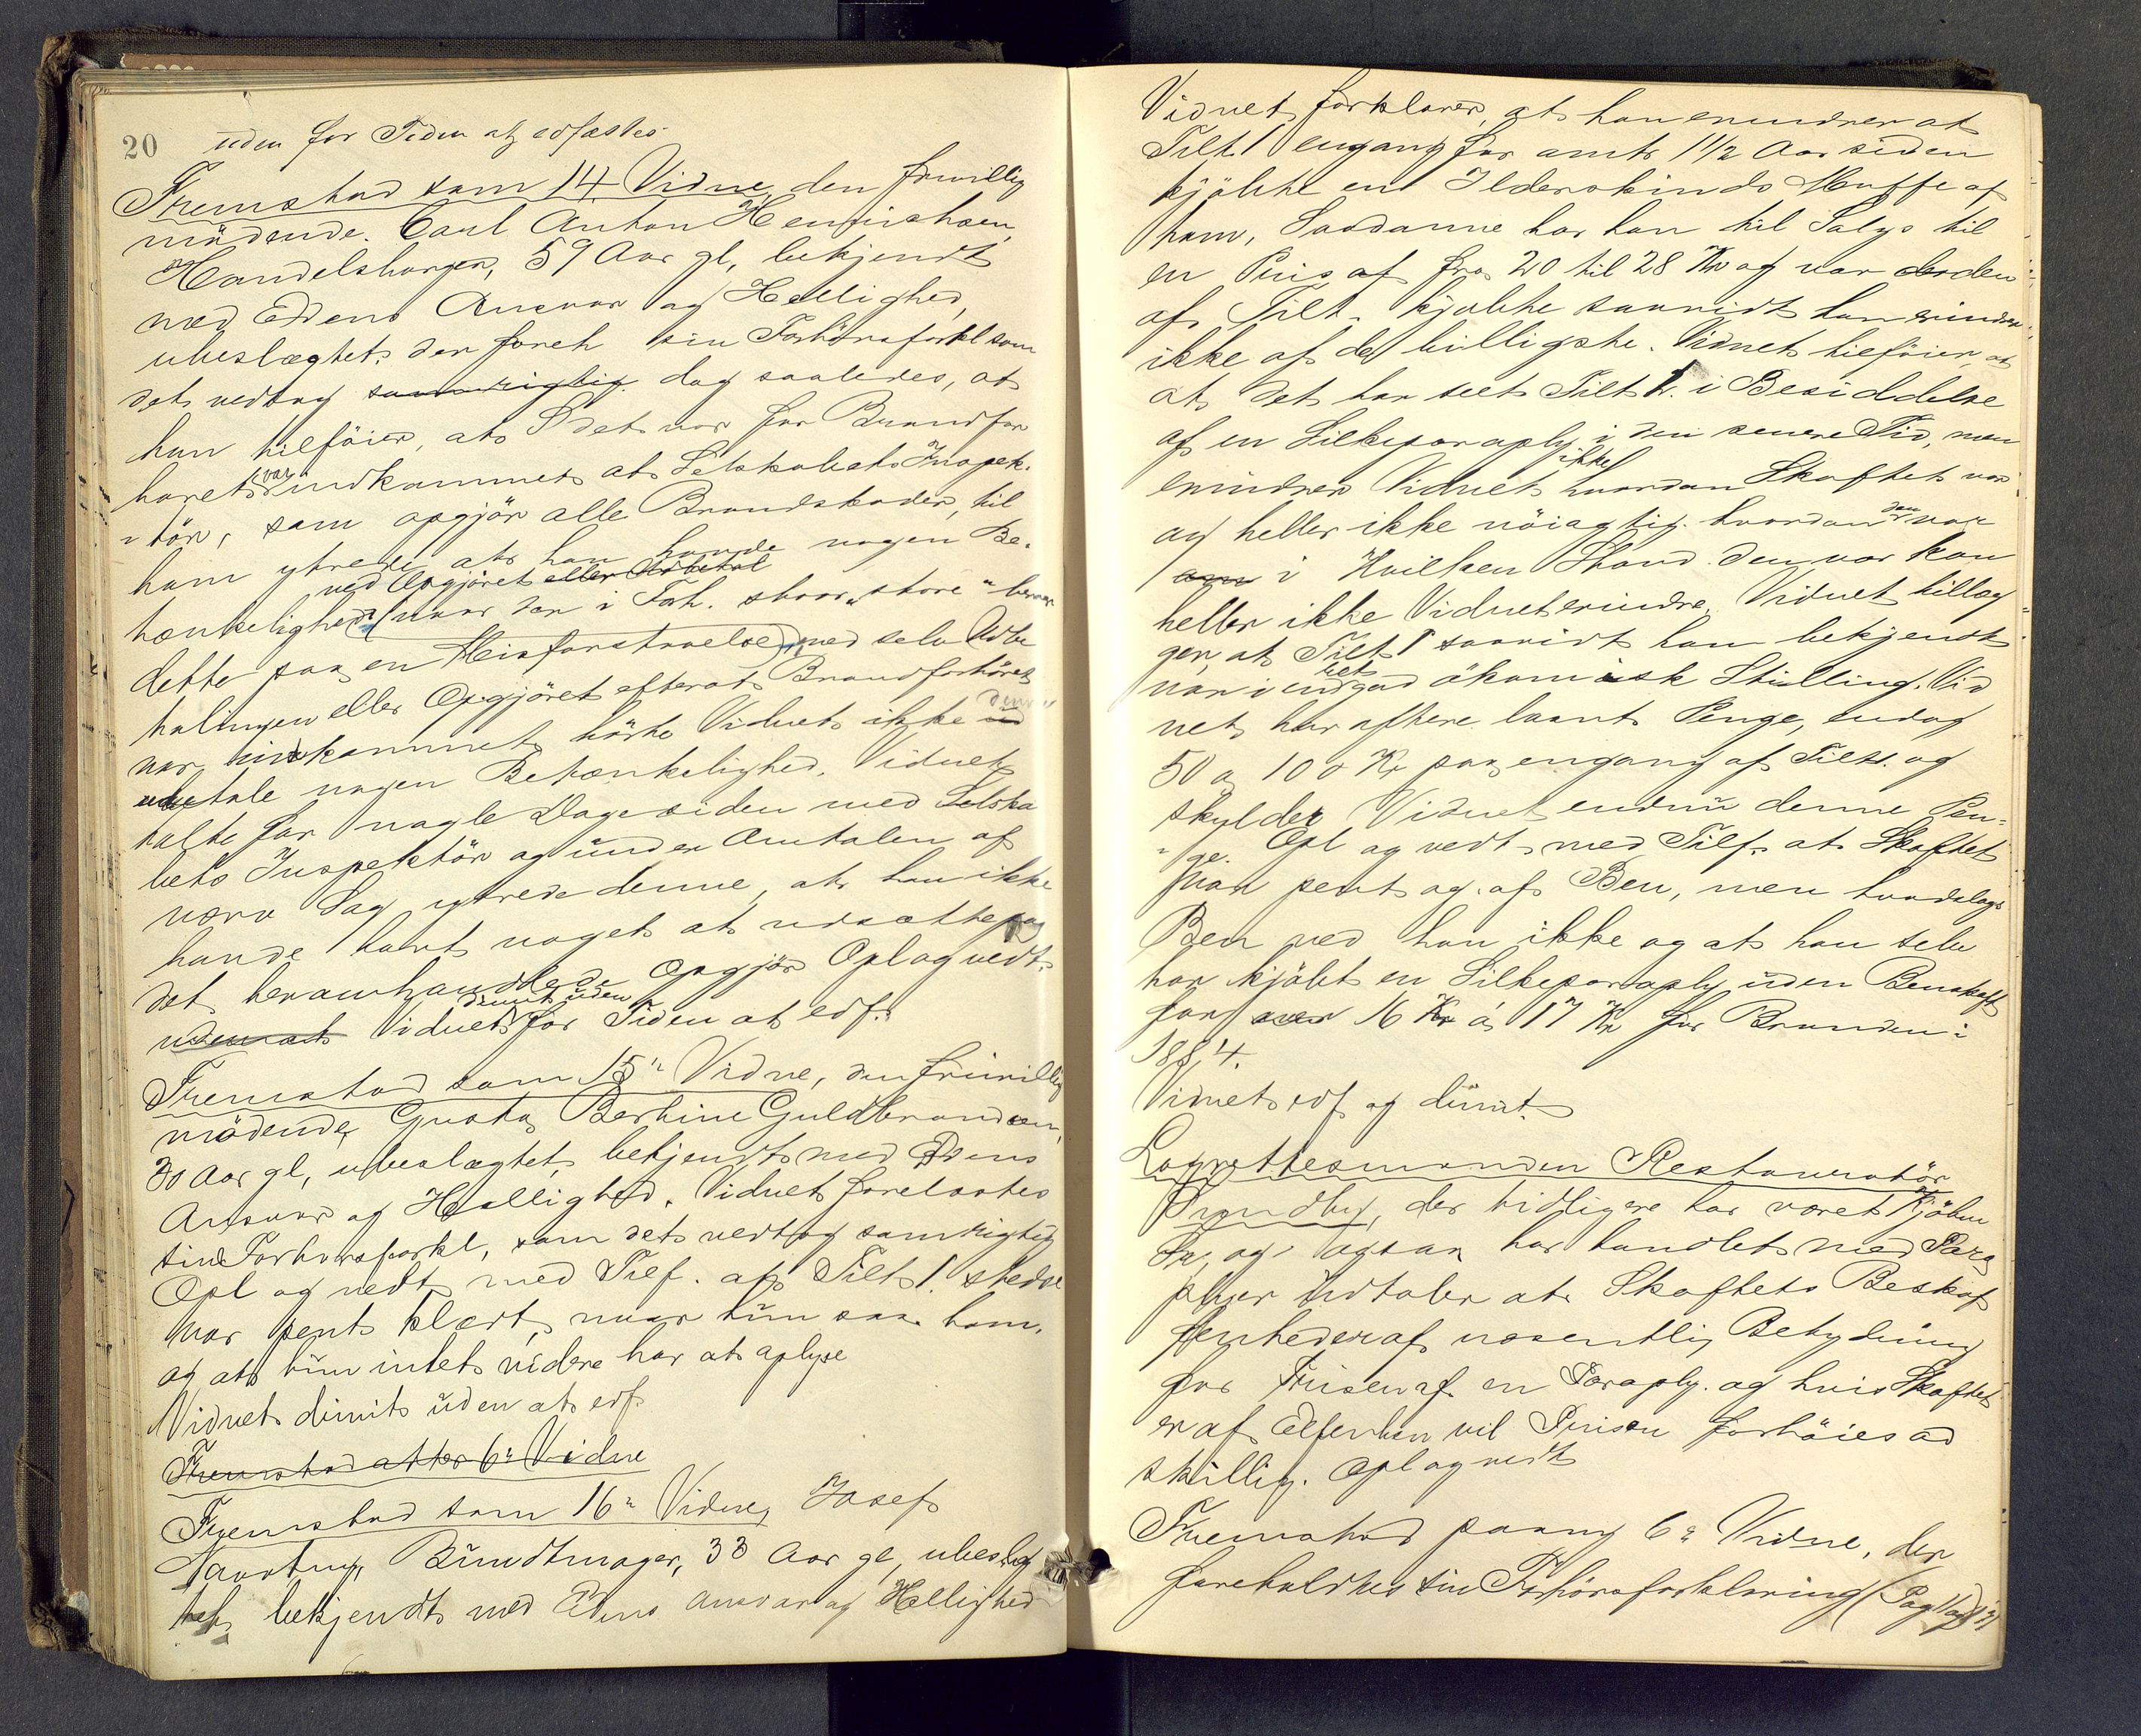 20 uden for Tiden at edfæstes
Fremstod som 14 Vidne, den frivillig
mødende Carl Anton Henrichsen,
Handelsborger, 59 Aar gl, bekjendt
med Edens Ansvar og Hellighed,
ubeslægtet, der foreh sin Forhørsforkl som
det vedtog samvrigtig dog saaledes, at
han tilføier, at det var før Brandfor
høret var indkommet at Selskabets Inspek-
-tør, som opgjør alle Brandskader, til
ham ytrede at han havde nogen Be-
ved Opgjøret eller Udbetal
tænkelighed (naar der i Forh. staar "store" beror
dette paa en Misforstaaelse) med selve Udbe
talingen eller Opgjøret efterat Brandforhøret
var indkommet hørte Vidnet ikke denne
udtale nogen Betænkelighed. Vidnet
talte for nogle Dage siden med Selska
bets Inspektør og under Omtalen af
nærv Sag ytrede denne, at han ikke
havde havt noget at udsætte paa
det heromhandlede Opgjør Opl og vedt.
udenat Vidnet dimit uden for Tiden at edf.
Fremstod som 15de Vidne, den frivillig
mødende Gusta Berthine Guldbrandsen,
30 Aar gl, ubeslægtet, bekjendt med Edens
Ansvar og Hellighed. Vidnet forelæstes
sin Forhørsforkl, som det vedtog samvrigtig
Opl og vedt med Tilf. at Tilt 1. stedse
var pent klædt, naar hun saa ham,
og at hun intet videre har at oplyse
Vidnet dimit uden at edf.
Fremstod atter 6te Vidne
Fremstod som 16de Vidne, Josef
Bundtmager, 33 Aar gl, ubeslæg
tet, bekjendt med Edens Ansvar og Hellighed
Vidnet forklarer, at han erindrer at
Tilt. 1 engang for omtr 1 1/2 Aar siden
kjøbte en Ilderskinds Muffe af
ham, Saadanne har han til Salgs til
en Pris af fra 20 til 28 Kr og var den
af Tilt. kjøbte saavidt han erindrer
ikke af de billigste. Vidnet tilføier, at
at det har seet Tilt 1. i Besiddelse
af en Silkeparaply i den senere Tid, men
erindrer Vidnet ikke hvordan Skaftet var
og heller ikke nøiagtig hvordan den var
om i hvilken Stand den var kan
heller ikke Vidnet erindre. Vidnet tillæg
ger, at Tilt 1 saavidt ham bekjendt
var i en god økonomisk Stilling. Vid
net har oftere laant Penge, endog
50 a 100 Kr paa engang af Tilt. og
skylder Vidnet endnu denne Pen-
-ge. Opl og vedt med Tilf. at Skaftet
var pent og af Ben, men hvadslags
Ben ved han ikke og at han selv
har kjøbt en Silkeparaply uden Benskaft
for 16 Kr á 17 Kr før Branden i
1884.
Vidnet edf og dimit.
Lagrettesmanden Restauratør
Sundby, der tidligere har været Kjøbm
og ogsaa har handlet med Para
plyer udtaler at Skaftets Beskaf
fenheder af væsentlig Betydning
for Prisen af en Paraply og hvis Skaftet
er af Elfenben vil Prisen forhøies ad
skillig. Opl og vedt
Fremstod paany 6te Vidne, der
foreholdtes sin Forhørsforklaring (Pag 11 og 12)